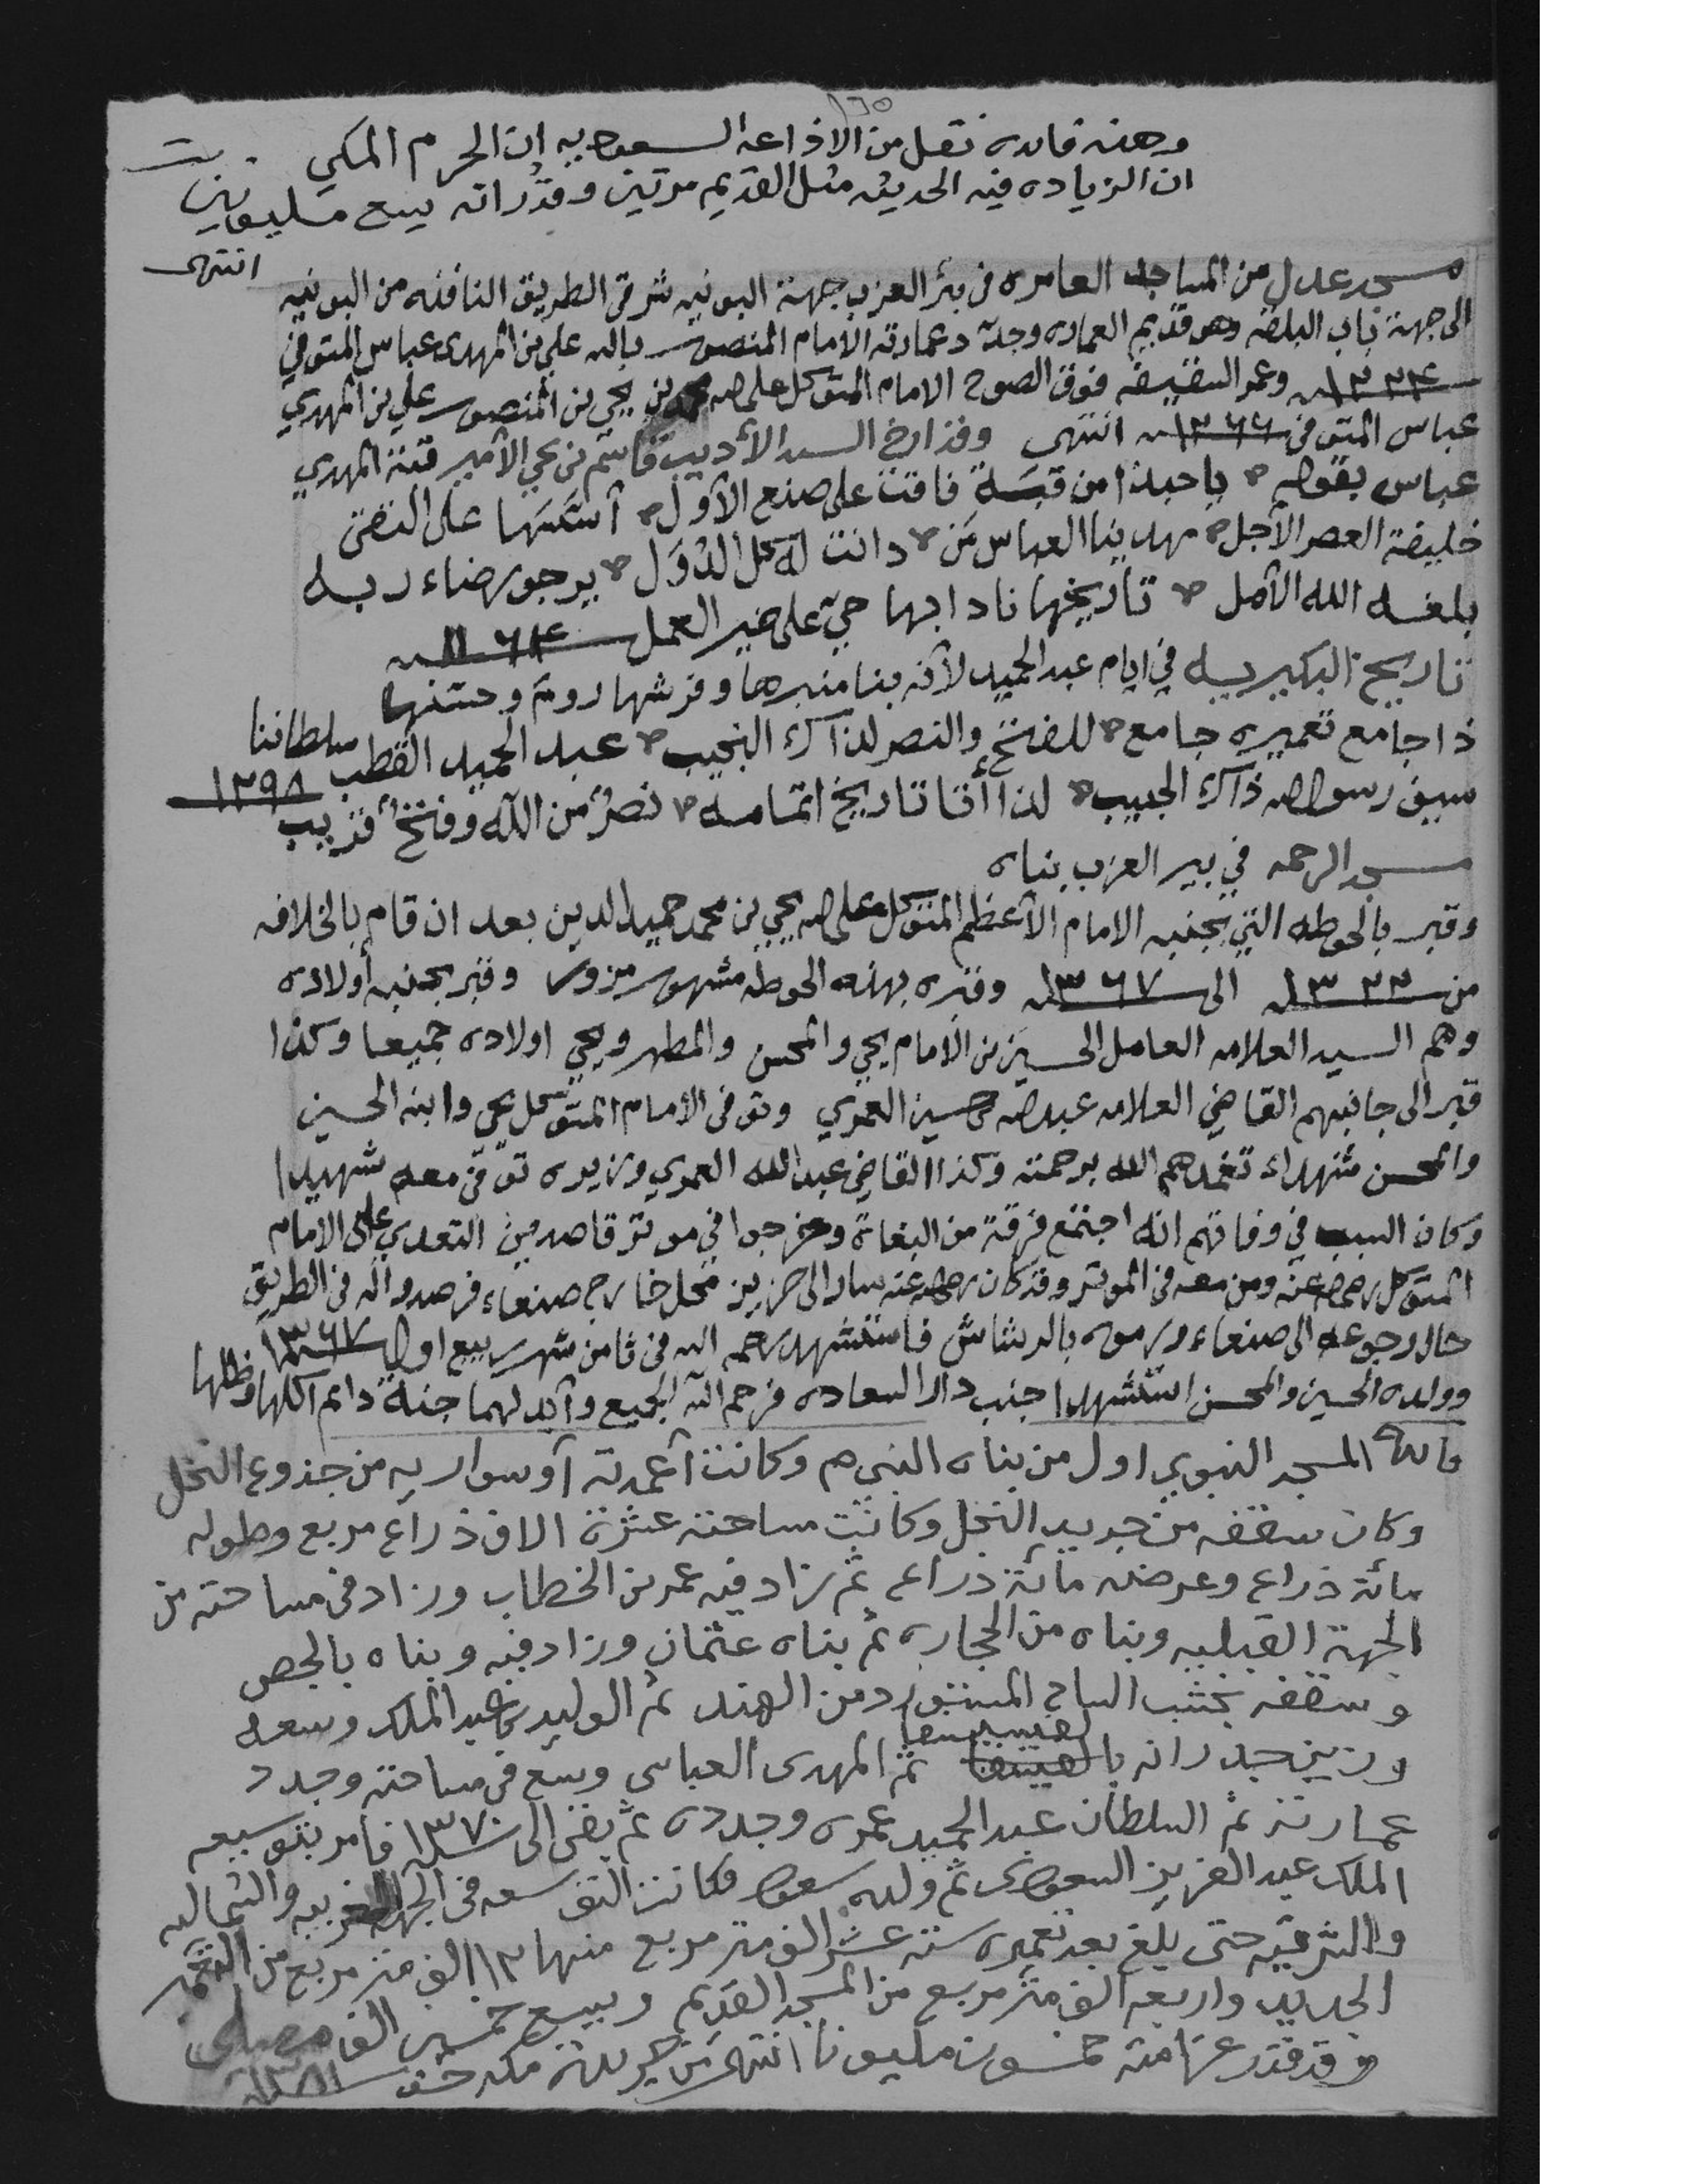 ١٦٥
وهذه فائده نقل من الاذاعه السعوديه ان الحرم المكي
ان الزياده فيه الحديثه مثل القديم مرتين وقدر انه يسع مليونين
انتهى
مسجد عدل من المساجد العامره في بئر العزب جهة البونيه شرقي الطريق النافذه من البونيه
الى جهة باب البلقه وهو قديم العماره وجدد عمارته الامام المنصور بالله علي بن المهدي عباس المتوفي
١٢٢٤ وعمر السقيفه فوق الصوح الامام المتوكل على الله محمد بن يحي بن المنصور علي بن المهدي
عباس المتوفي ١٢٦٦ انتهى وقد ارخ السيد الأديب قاسم بن يحي الأمير قبة المهدي
عباس بقوله ياحبذا من قبة فاقت على صنع الأول أسسها على التقى
خليفة العصر الأجل مهدينا العباس من دانت له كل الدول يرجو رضاء ربه
بلغه الله الأمل تاريخها نادا بها حي على خير العمل ١١٦٤
تاريخ البكيريه في ايام عبد الحميد لأنه بنا منبرها وفرشها روم وحسنها
ذا جامع تعميره جامع للفتح والنصر لذاك النجيب عبد الحميد القطب سلطاننا
سيف رسول الله ذاك الحبيب لذا أتا تاريخ اتمامه نصر من الله وفتح قريب ١٢٩٨
مسجد الرحمه في بير العزب بناه
وقبر بالحوطه التي بجنبه الامام الأعظم المتوكل على الله يحيي بن محمد حميد الدين بعد ان قام بالخلافه
من ١٣٢٢ الى ١٣٦٧ وقبره بهذه الحوطه مشهور مزور وقبر بجنبه أولاده
وهم السيد العلامه العامل الحسين بن الامام يحي والمحسن والمطهر ويحي اولاده جميعا وكذا
قبر الى جانبهم القاضي العلامه عبد الله حسين العمري وتوفي الأمام المتوكل يحي وابنه الحسين
والمحسن شهداء تغمدهم الله برحمته وكذا القاضي عبد الله العمري وزيره توفي معه شهيدا
وكان السبب في وفاتهم انه اجتمع فرقة من البغاة وخرجوا في موتر قاصدين التعدي على الامام
المتوكل رضي الله عنه ومن معه في الموتر وقد كان رضي الله عنه سار الى حزيز محل خارج صنعاء فرصدوا له في الطريق
حال رجوعه الى صنعاء ورموه بالرشاش فاستشهد رحمه الله في ثامن شهر ربيع اول ١٣٦٧
وولده الحسين والمحسن استشهدا جنب دار السعاده فرحم الله الجميع وأبد لهما جنة دائم أكلها وظلها
فائدة المسجد النبوي اول من بناه النبي صم وكانت أعمدته أو سواريه من جذوع النخل
وكان سقفه من جريد النخل وكانت مساحته عشرة الاف ذراع مربع وطوله
مائة ذراع وعرضه مائة ذراع ثم زاد فيه عمر بن الخطاب وزاد في مساحته من
الجهة القبليه وبناه من الحجاره ثم بناه عثمان وزاد فيه وبناه بالجص
وسقفه بخشب الساج المستورد من الهند ثم الوليد بن عبد الملك وسعه
وزين جدرانه بالفسيفسا ثم المهدي العباسي وسع في مساحته وجدد
عمارته ثم السلطان عبد المجيد عمره وجدده ثم بقي الى ١٣٧٠ فامر بتوسيعه
الملك عبد العزيز السعودي ثم ولده سعود فكانت التوسعه في الجهه الغربيه والشماليه
والشرقيه حتى بلغ بعد تعميره سته عشر الف متر مربع منها ١٢ الف متر مربع من التعمير
الجديد واربعه الف متر مربع من المسجد القديم ويسع خمسين الف مصلي
وقد قدر غرامته خمسون مليونا انتهى من جريدة مكه ١٣٨١